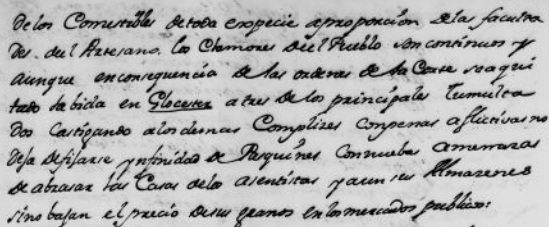 de los Comestibles de toda expecie a proporcion de las faculta
des del Artesano. los Clamores del Pueblo son continuos y
aunque en consequencia de las ordenes de la Corte se a qui
tado la bida en Glocester a tres de los principales Tumulta
dos castigando a los demas Complizes con penas aflictivas no
deja de fijarse ynfinidad de Pasquines con nuebas amenazas
de abrasar las Casas de los asentistas y aun sus Almazenes
si no bajan el precio de sus granos en los mercados publicos: